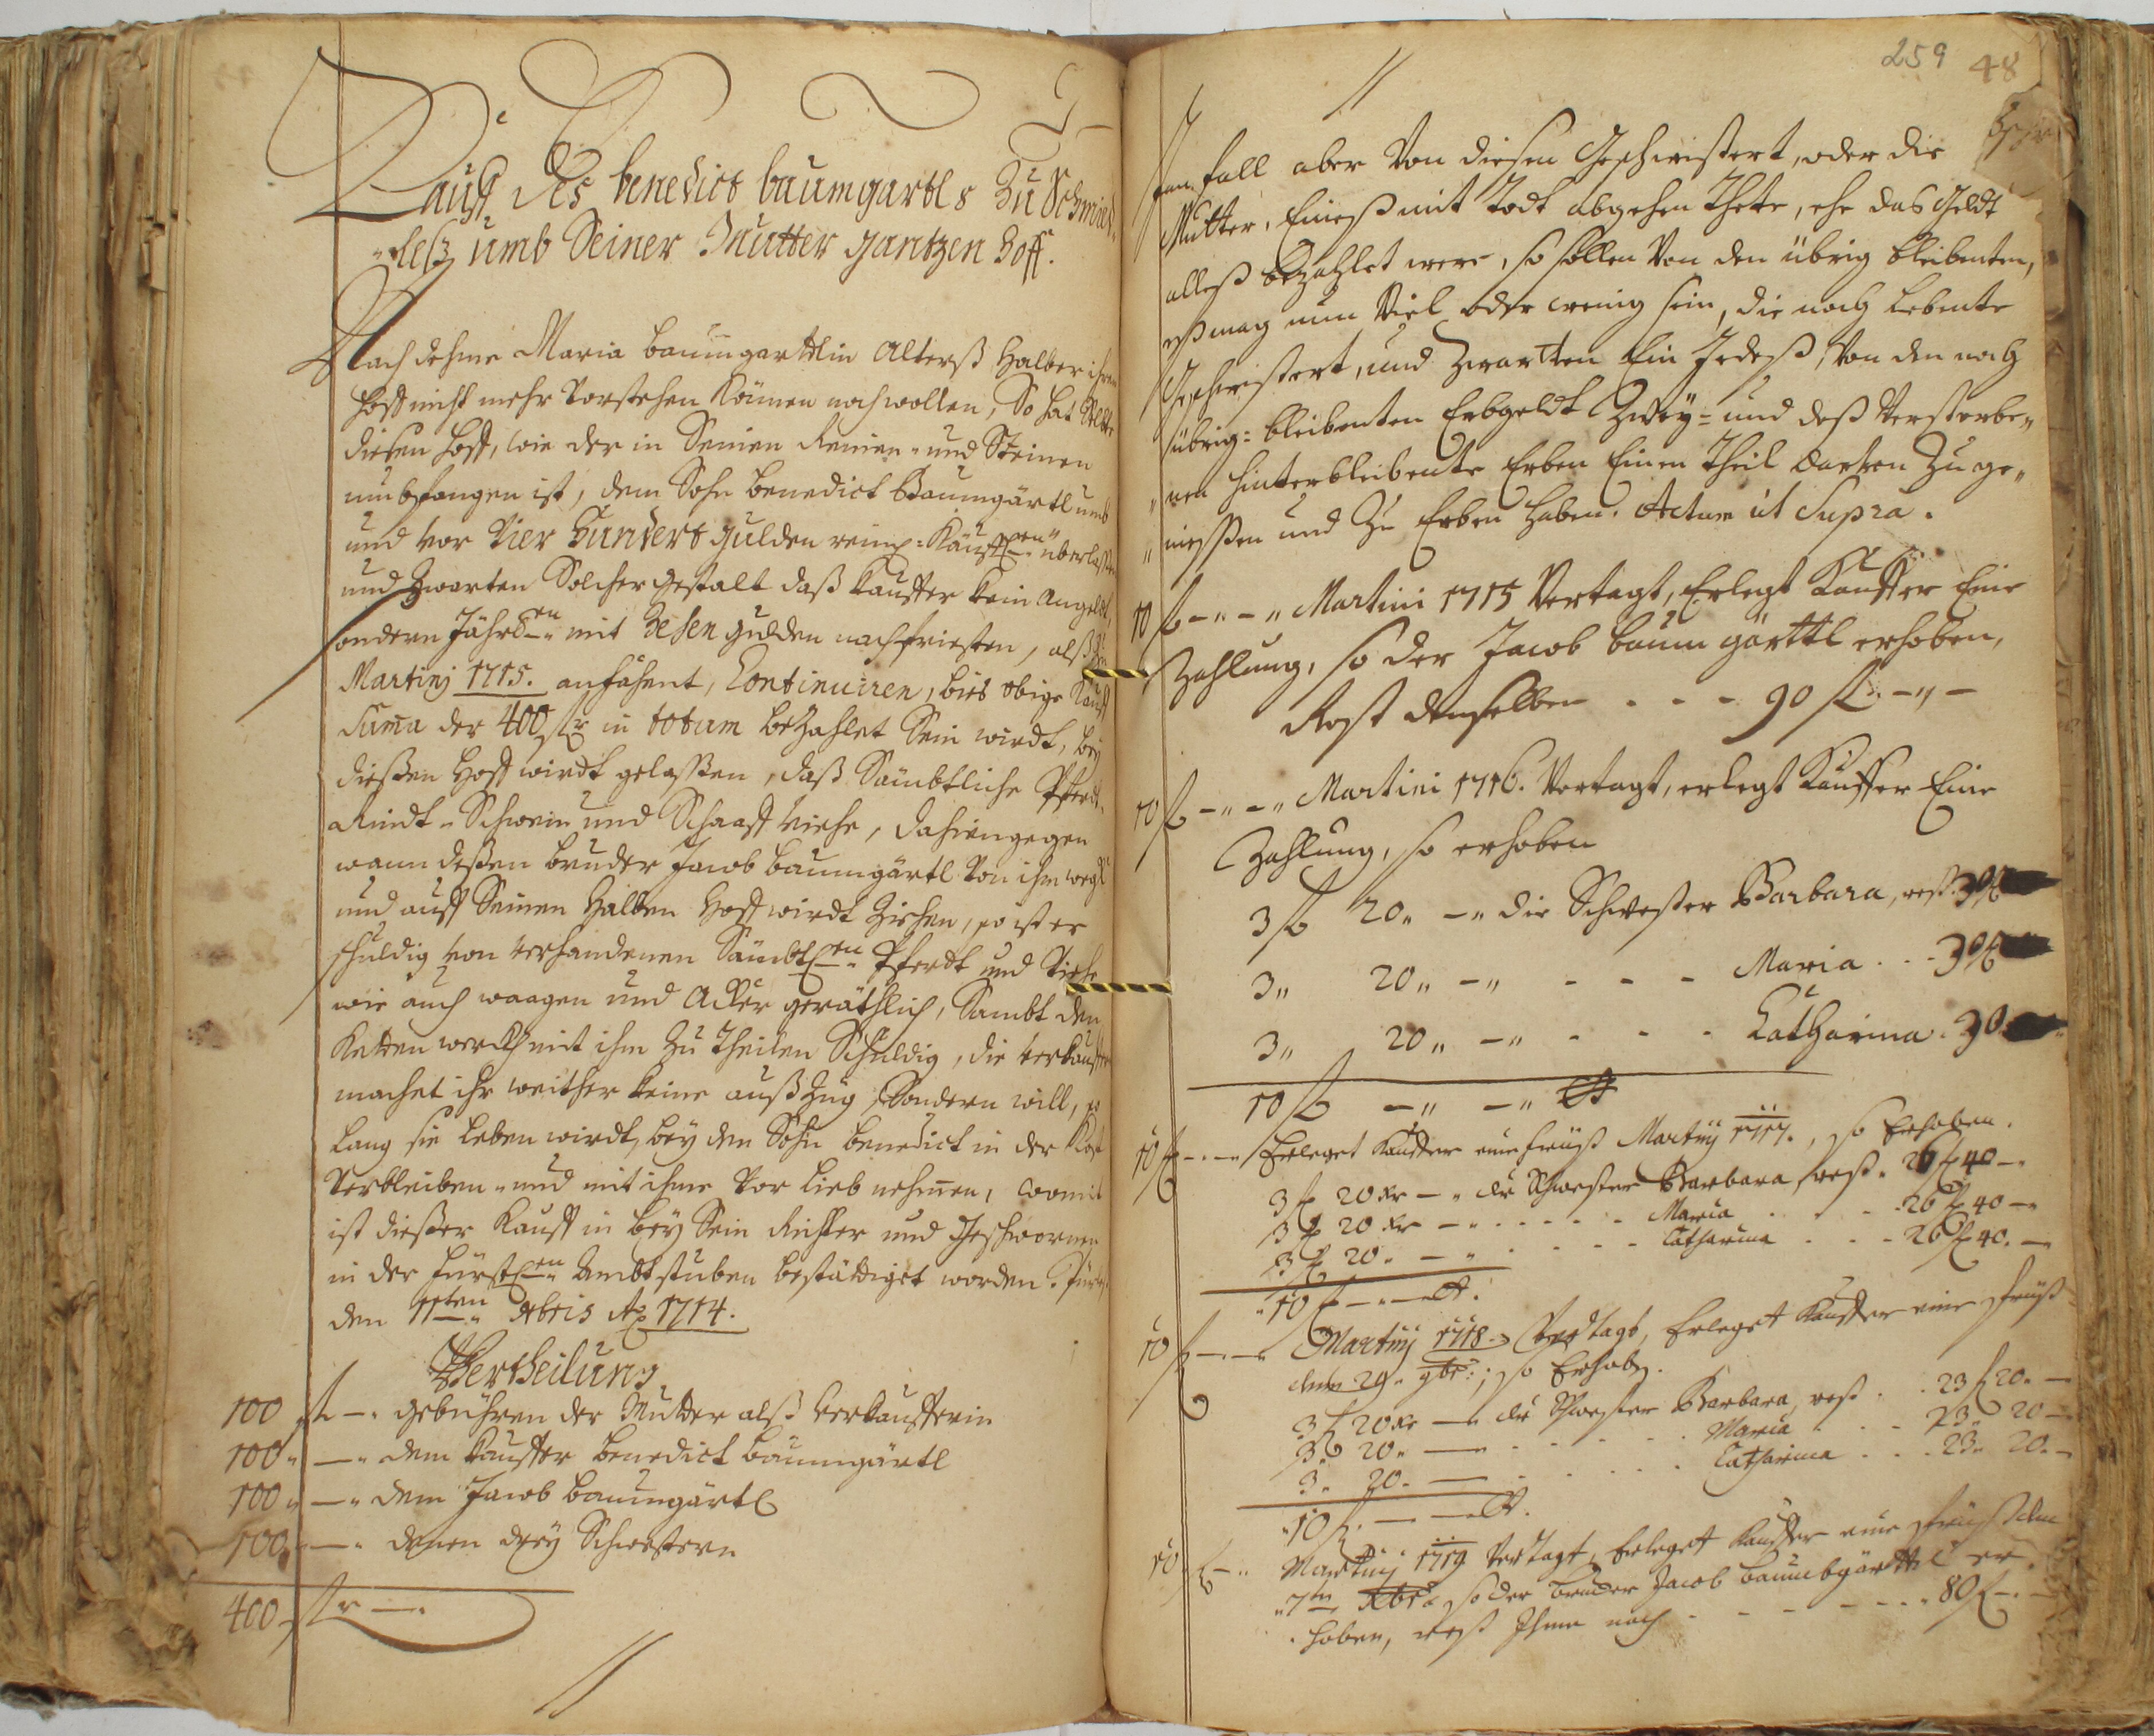 Kauff des benedict baumgartls Zu Schmied-
"elß umb Seiner Mutter gantzen Hoff.
Nach dehme Maria baumgarttlin Alterß Halber ihren
Hoff nicht mehr Vorstehen Können noch wollen, So hat
diesen Hoff, wie der in Seinen Reinen- und Steinen
umbfangen ist, dem Sohn benedict Baumgärtl umb
und vor Vier Hundert gulden reinɮ: Käufflen überlaßen
und Zwarten Solcher gestalt daß Kauffer kein Angeldt,
sondern Jährlen mit Zehen gulden nachfristen, alß
Martinj 1715. anfahent, Continuiren, bis obige Kauff
Suma der 400 fl in totum bezahlet Sein wirdt, bey
dießen Hoff wirdt gelaßen, daß Sambtliche Pferdt-
Rindt- Schwein und Schaaff Viehe, dahiengegen
wann deßen bruder Jacob baumgärtl Von ihm weg
und auff Seinen Halben Hoff wirdt Ziehen, so ist er
schuldig von verhandenen Sämbtlen Pferdt und Viehe
wie auch waagen und Acker geräthlich, Sambt den
Ketten werckh mit ihm Zu theilen Schuldig, die Verkauffe
machet ihr weither keine außzüg, Sondern will, so
lang sie leben wirdt, bey den Sohn benedict in der Kost
Verbleiben - und mit ihme Vor lieb nehmen, womit
ist dießer Kauff in bey Sein Richter und Geschwornen
in der Fürstlen Ambtstuben bestättiget worden.
den 11ten Xbris Ao 1714.
Vertheilung
100 fl —" gebühren der Mutter alß Verkaufferin
100 " —" dem Kauffer benedict baumgärtl
100 " —" dem Jacob baumgärtl
100 " —" denen drey Schwestern
400 fl —"
259 48
fall aber Von diesen Geschwistert, oder die
Mutter, Eineß mit Todt abgehen Thete, ehe das Geldt
alleß bezahlet were, so sollen Von den übrig bleibenten,
eß mag nun Viel oder wenig sein, die noch lebente
Geschwistert, und Zwartten Ein Jedeß, Von den noch
übrig= bleibenten Erbgeldt Zwey= und deß Verstorbe"
"nen hinterbleibente Erben Einen Theil darvon Zu ge"
"niessen und Zu Erben haben. Actum ut Supra.
10 fl -"-" Martini 1715 Vertagt, Erlegt Kauffer Eine
Zahlung, so der Jacob baumgärttl erhoben,
Rest demselben . - - 90 fl -"-
10 fl -"-" Martini 1716. Vertagt, erlegt Kauffer Eine
Zahlung, so erhoben
3 fl 20" -" die Schwester Barbara, rest 30 fl
3" 20" -" - - - Maria . . 30 fl
3" 20" -" - - - Catharina . 30
10 fl -" -"
10 fl -.-" Erleget Kauffer eine friest Martinj 1717., so Erhoben.
3 fl 20 Kr -" die Schwester Barbara, rest. 26 fl 40 -"
3 fl 20 Kr -" . . . . Maria . . . 26 fl 40 -"
3 fl 20. -" . . . . Catharina . . - 26 fl 40. -
"10 fl -"-
10 fl -.-" Martinj 1718. Vertagt, Erleget Kauffer eine friest
den 29. 9br:, so Erhoben.
3 fl 20 Kr -" die Schwester Barbara, rest . . 23 fl 20. -
3 fl 20. -" . . . . Maria . . - 23 20 -
3. 20. -" . . . . Catharina . . . 23. 20. -
"10 fl. -
10 fl -" Martinj 1719 Vertagt, Erleget Kauffer eine friest den
"7ten Xbr. so der bruder Jacob baumbgärttl er-
.hoben, rest Ihme noch - - - - . . . 80 fl -.